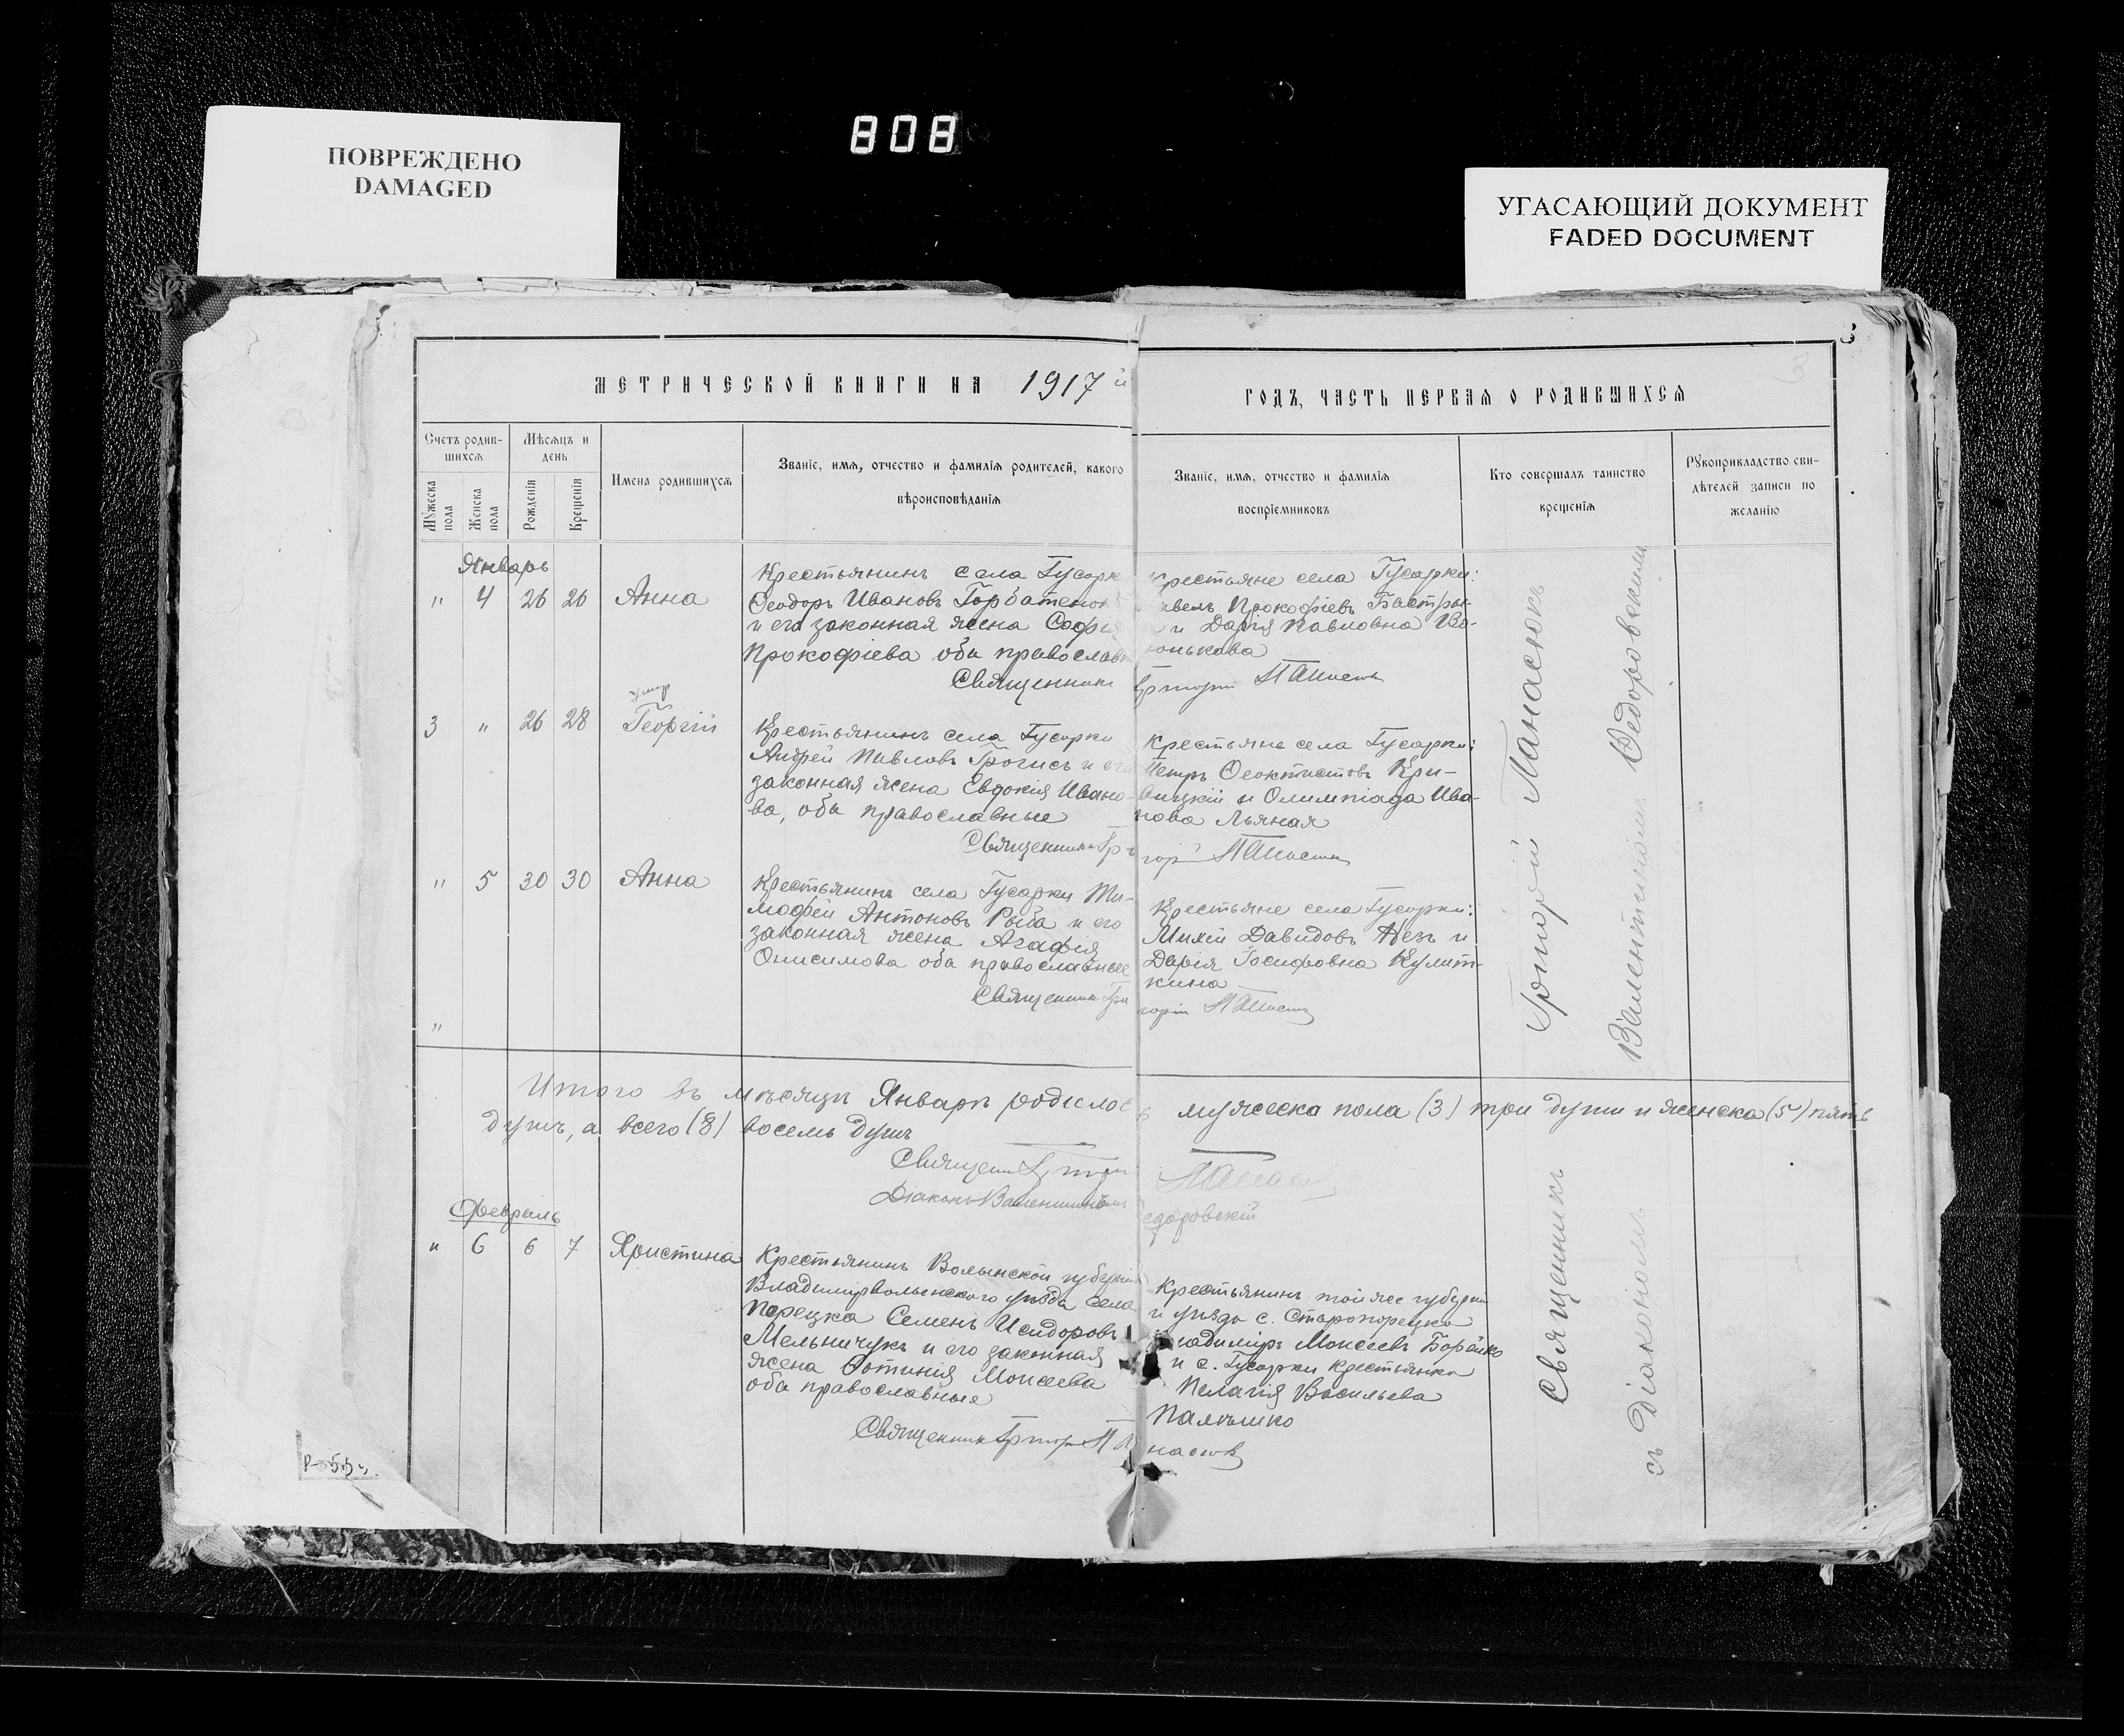 808
ПОВРЕЖДЕНО
DAMAGED
УГАСАЮЩИЙ ДОКУМЕНТ
FADED DOCUMENT
3
МЕТРИЧЕСКОЙ КНИГИ НА 1917 й
ГОДЪ, ЧАСТЬ ПЕРВАЯ О РОДИВШИХСЯ
Счетъ родив-
шихся
Мужеска пола
Женска пола
Мѣсяцъ и
день
Рожденія
Крещенія
Имена родившихся
Званіе, имя, отчество и фамилія родителей, какого
вѣроисповѣданія
Званіе, имя, отчество и фамилія
воспріемниковъ
Кто совершалъ таинство
крещенія
Рукоприкладство сви-
дѣтелей записи по
желанію
Январь
" 4 26 26 Анна
Крестьянинъ села Гусарк
Ѳеодоръ Ивановъ Горбатенко
и его законная жена Софія
Прокофіева оба православн
Священникъ
Крестьяне села Гусарки:
Прокофіевъ
и Дарія Павловна Во-
нькова
3 " 26 28 Георгій
умер
Крестьянинъ села Гусарки
Андрей Павловъ и его
законная жена Евдокія Ивано-
ва, оба православные
Священникъ Гри
Крестьяне села Гусарки:
Петръ Ѳеоктистовъ Кри-
вицкій и Олимпіада Ива-
нова Льяная
горій
" 5 30 30 Анна
Крестьянинъ села Гусарки Ти-
мофей Антоновъ Рыба и его
законная жена Агафія
Онисимова оба православные
Священникъ Гри
Крестьяне села Гусарки:
Давидовъ и
Дарія Іосифовна Кулит-
кина
горій
"
Итого въ мѣсяцѣ Январѣ родилось мужеска пола (3) три души и женска (5) пять
душъ, а всего (8) восемь душъ
Священ
Діаконъ Валентинъ Ѳедоровскій
Февраль
" 6 6 7 Христина
Крестьянинъ Волынской губерніи
Владимірволынского уѣзда села
Порецка Семенъ Исидоровъ
Мельничукъ и его законная
жена Фотинія Моисеева
оба православные
Священникъ Григорій Па
Крестьянинъ той же губерніи
и уѣзда с. Старопорецка
ладиміръ Моисеевъ Борейко
и с. Гусарки крестьянка
Пелагія Васильева
насюкъ
Священникъ Григорій Панасюкъ
съ Діакономъ Валентиномъ Ѳедоровскимъ